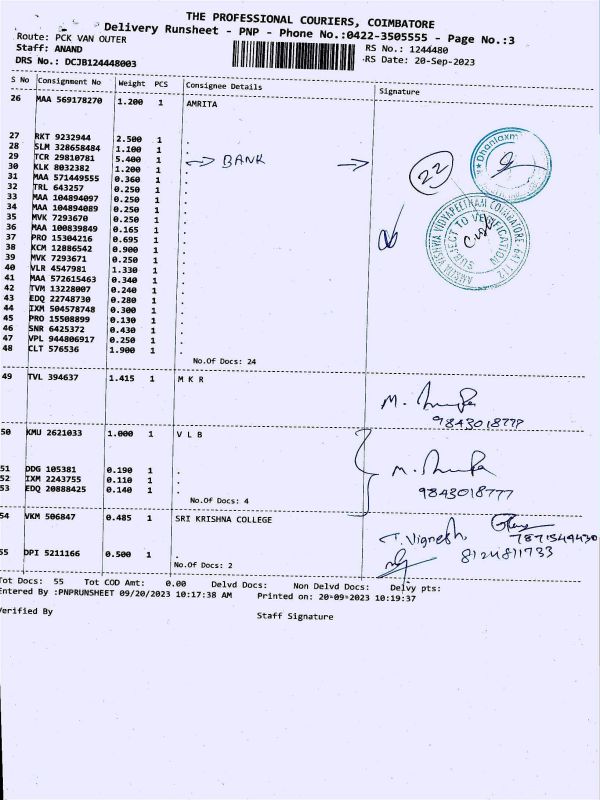 THE PROFESSIONAL COURIERS, COIMBATORE
Delivery Runsheet - PNP - Phone No.:0422-3505555 - Page No.:3
Route: PCK VAN OUTER
RS No.: 1244480
Staff: ANAND
RS Date: 20-Sep-2023
DRS No.: DCJB124448003
S No Consignment No Weight PCS Consignee Details Signature
26 MAA 569178270 1.200 1 AMRITA
27 RKT 9232944 2.500 1 .
28 SLM 328658484 1.100 1 .
29 TCR 29810781 5.400 1 . BANK
30 KLK 8032382 1.200 1 .
31 MAA 571449555 0.360 1 .
32 TRL 643257 0.250 1 .
33 MAA 104894097 0.250 1 .
34 MAA 104894089 0.250 1 .
35 MVK 7293670 0.250 1 .
36 MAA 100839849 0.165 1 .
37 PRO 15304216 0.695 1 .
38 KCM 12886542 0.900 1 .
39 MVK 7293671 0.250 1 .
40 VLR 4547981 1.330 1 .
41 MAA 572615463 0.340 1 .
42 TVM 13228007 0.240 1 .
43 EDQ 22748730 0.280 1 .
44 IXM 504578748 0.300 1 .
45 PRO 15508899 0.130 1 .
46 SNR 6425372 0.430 1 .
47 VPL 944806917 0.250 1 .
48 CLT 576536 1.900 1 .
22
Dhanlaxm
AMRITA VISHWA VIDYAPEETHAM COIMBATORE-641 112
SUBJECT TO VERIFICATION
No.Of Docs: 24
49 TVL 394637 1.415 1 M K R
9843018777
50 KMU 2621033 1.000 1 V L B
51 DDG 105381 0.190 1 .
52 IXM 2243755 0.110 1 .
53 EDQ 20888425 0.140 1 .
9843018777
No.Of Docs: 4
54 VKM 506847 0.485 1 SRI KRISHNA COLLEGE
T. Vignesh
7871544430
8124811733
55 DPI 5211166 0.500 1 .
No.Of Docs: 2
Tot Docs: 55 Tot COD Amt: 0.00 Delvd Docs: Non Delvd Docs: Delvy pts:
Entered By :PNPRUNSHEET 09/20/2023 10:17:38 AM Printed on: 20-09-2023 10:19:37
Verified By
Staff Signature